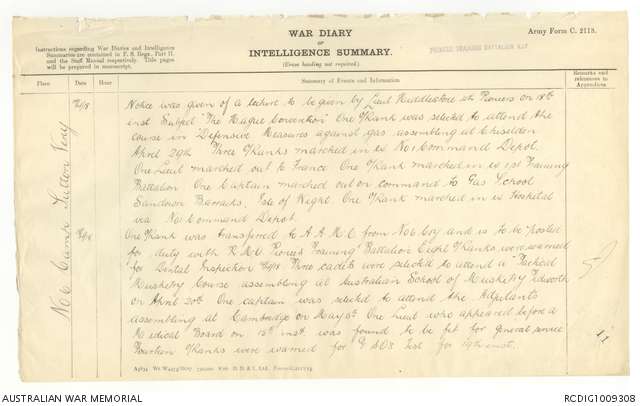 WAR DIARY
or
INTELLIGENCE SUMMARY.
(Erase heading not required).
Army Form C. 2118.
PIONEER TRAINING BATTALION AIF
Instructions regarding War Diaries and Intelligence
Summaries are contained in F. S. Regs., Part II.
and the Staff Manual respectively. Title pages
will be prepared in manuscript.
Place
Date
Hour
Summary of Events and Information
Remarks and
references to
Appendices
No 6 Camp Sutton Very
Notice was given of a lecture to be given by Lieut Huddlestone at Pioneers on 18th
inst Subject "The Hague Convention" One O/Rank was selected to attend the
course in Defensive Measures against gas assembling at Chiseldon
April 29th Three O/Ranks marched in ex No 1 Command Depot.
One Lieut marched out to France One O/Rank marched in ex 1st Training
Battalion One Captain marched out on command to Gas School
Sandown Barracks, Isle of Wight. One O/Rank marched in ex Hospital
via No 1 Command Depot.
One O/Rank was transferred to A A M C from No 6 Coy and is to be posted
for duty with R M O Pioneer Training Battalion Eight O/Ranks were warned
for Dental Inspection Three cadets were selected to attend a
Musketry Course assembling at Australian School of Musketry Tidworth
on April 20th One captain was selected to attend the Adjutants
assembling at Cambridge on May 5th One Lieut who appeared before a
Medical Board on 15th inst. was found to be fit for general service
Fourteen O/Ranks were warned for Test for 19th inst.
AUSTRALIAN WAR MEMORIAL
RCDIG1009308